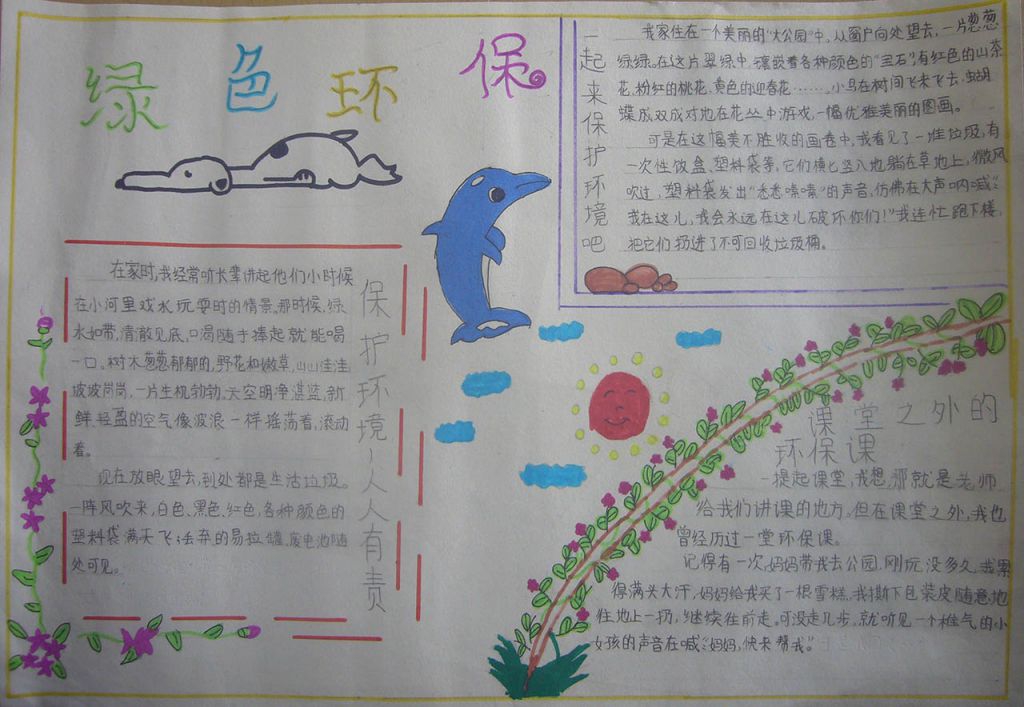 绿色环保
一起来保护环境吧
我家住在一个美丽的“大公园”中，从窗户向处望去，一片葱葱
绿绿。在这片翠绿中，镶嵌着各种颜色的“宝石”，有红色的山茶
花，粉红的桃花，黄色的迎春花……，小鸟在树间飞来飞去，蝴
蝶成双成对地在花丛中游戏，一幅优雅美丽的图画。
可是在这幅美不胜收的画卷中，我看见了一堆垃圾，有
一次性饭盒、塑料袋等，它们横七竖八地躺在草地上，微风
吹过，塑料袋发出“悉悉嗦嗦”的声音，仿佛在大声呐喊：“
我在这儿，我会永远在这儿破坏你们！”我连忙跑下楼，
把它们扔进了不可回收垃圾桶。
保护环境—人人有责
在家时，我经常听长辈讲起他们小时候
在小河里戏水玩耍时的情景。那时候，绿
水如带，清澈见底，口渴随手捧起就能喝
一口。树木葱葱郁郁的，野花和嫩草，山山洼洼
坡坡岗岗，一片生机勃勃，天空明净湛蓝，新
鲜、轻盈的空气像波浪一样摇荡着，滚动
着。
现在放眼望去，到处都是生活垃圾。
一阵风吹来，白色、黑色、红色，各种颜色的
塑料袋满天飞；丢弃的易拉罐、废电池随
处可见。
课堂之外的
环保课
一提起课堂，我想，那就是老师
给我们讲课的地方。但在课堂之外，我也
曾经历过一堂环保课。
记得有一次，妈妈带我去公园，刚玩没多久，我累
得满头大汗，妈妈给我买了一根雪糕，我撕下包装皮随意地
往地上一扔，继续往前走。可没走几步，就听见一个稚气的小
女孩的声音在喊：“妈妈，快来帮我。”